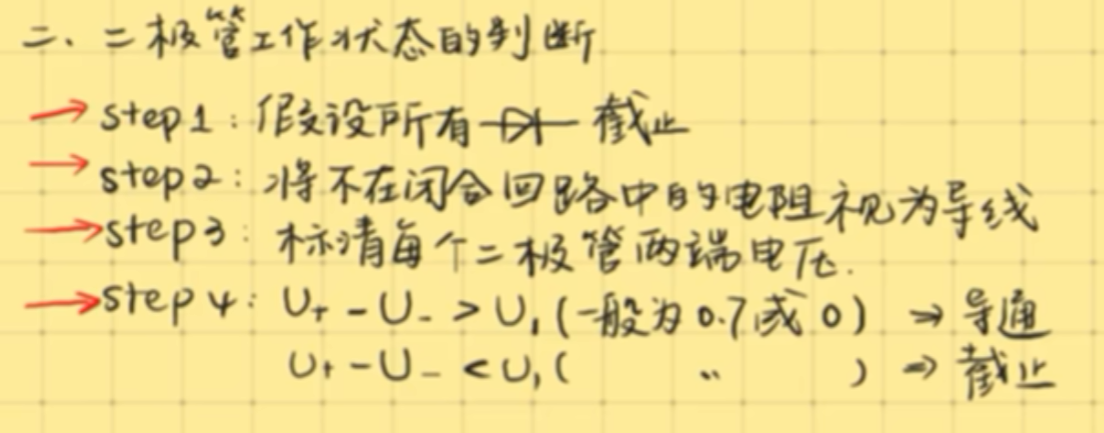 二、二极管工作状态的判断
step1：假设所有 截止
step2：将不在闭合回路中的电阻视为导线
step3：标清每个二极管两端电压.
step4：U+ - U- > U1 (一般为0.7或0) ⇒ 导通
U+ - U- < U1 ( 〃 ) ⇒ 截止